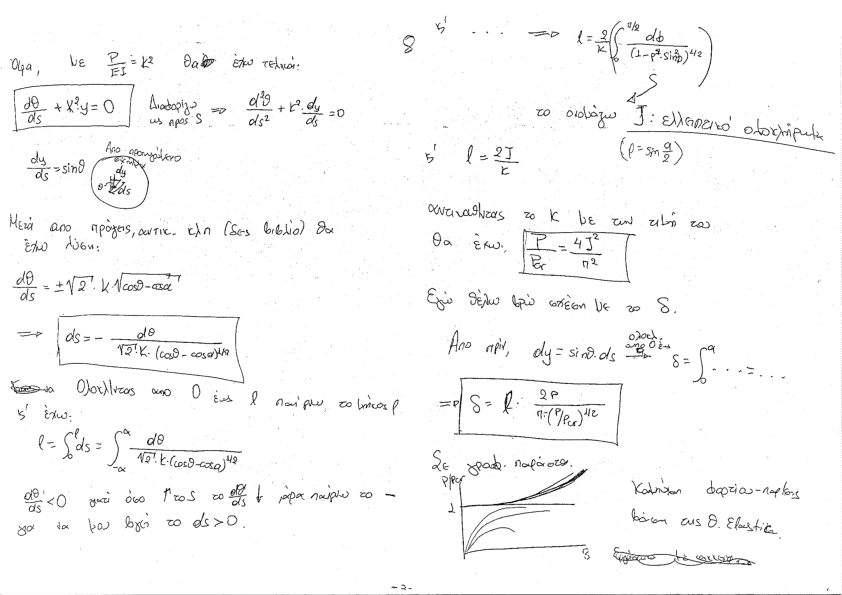 Άρα, με P/EI = k² θα έχω τελικά:
dθ/ds + k²·y = 0 Διαφορίζω ως προς S ⇒ d²θ/ds² + k²·dy/ds = 0
dy/ds = sinθ Από προηγούμενο
dy
θ ds
Μετά από πράξεις, αντικ. κλπ (δες βιβλίο) θα
έχω λύση:
dθ/ds = ±√2·k√(cosθ-cosα)
⇒ ds = - dθ/(√2·k·(cosθ-cosα)^1/2)
Ολοκλ/ντας από 0 έως l παίρνω το μήκος l
κ' έχω:
l = ∫₀^l ds = ∫_{-α}^{α} dθ/(√2·k·(cosθ-cosα)^1/2)
dθ/ds < 0 γιατί όσο ↑ το s το dθ/ds ↓ άρα παίρνω το -
για να μου βγεί το ds > 0.
8
κ' .... ⇒ l = 2/k (∫₀^{π/2} dφ/(1-p²·sin²φ)^1/2)
το ονομάζω J: ελλειπτικό ολοκλήρωμα
(p = sin α/2)
κ' l = 2J/k
αντικαθ/ντας το k με την τιμή του
θα έχω: P/Pcr = 4J²/π²
Εγώ θέλω βρώ σχέση με το δ.
Από πρίν, dy = sinθ·ds ολοκλ. από 0 έως δ = ∫₀^α .... = ...
⇒ δ = l· 2p/(π·(P/Pcr)^1/2)
Σε γραφ. παράσταση.
P/Pcr
1
δ
Καμπύλη φορτίου-παρ/σης
βάσει της θ. Elastika.
-2-